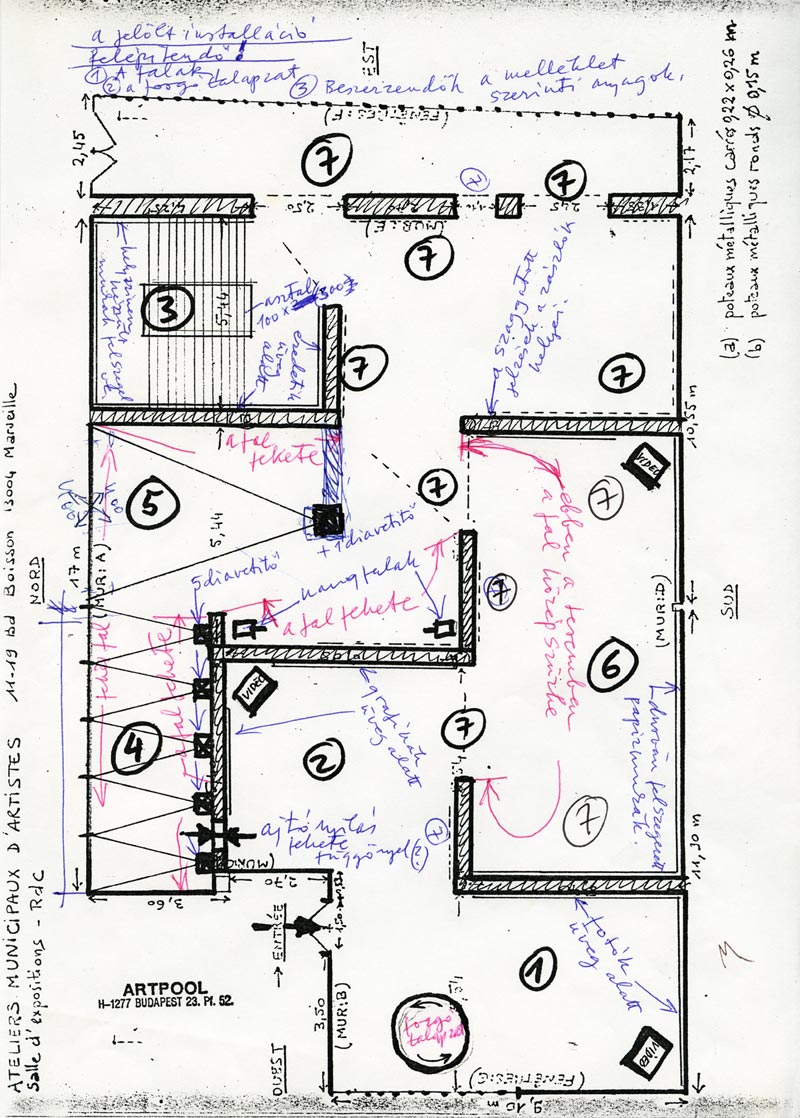 a jelölt installáció
felépítendő!
① A falak
② a forgó talapzat
③ Beszerzendők a melléklet
szerinti anyagok.
EST
(a) poteaux métalliques carrés 0,22 x 0,26 m
(b) poteaux métalliques ronds ø 0,15 m
2,45
(FENÊTRES: F)
2,17
7
7
7
4,25
2,50
2,45
(MUR: E)
7
3
5,44
asztal
100 x
300
eredetik
üveg
alatt
7
a szaggatott
jelzések a zászlók
helyei.
7
10,55 m
a fal
fekete
5
5,44
7
VIDEO
7
ebben a teremben
a fal középszürke
+1 diavetítő
5 diavetítő
hangfalak
a fal fekete
NORD
17 m
(MUR: A)
7
(MUR: D)
SUD
6
a fal fekete
4
VIDEO
6 grafikák
üveg alatt
2
7
durván felszegezett
papírmunkák.
7
7
ajtónyílás
fekete
függönnyel (?)
(MUR: C)
2,70
3,60
11,50 m
ENTRÉE
1,50
fotók
üveg alatt
1
3,50
(MUR: B)
forgó
talapzat
VIDEO
OUEST
(FENÊTRES: G)
9,10 m
ARTPOOL
H-1277 BUDAPEST 23. Pf. 52.
ATELIERS MUNICIPAUX D'ARTISTES 11-19 Bd Boisson 13004 Marseille
Salle d'expositions - RdC